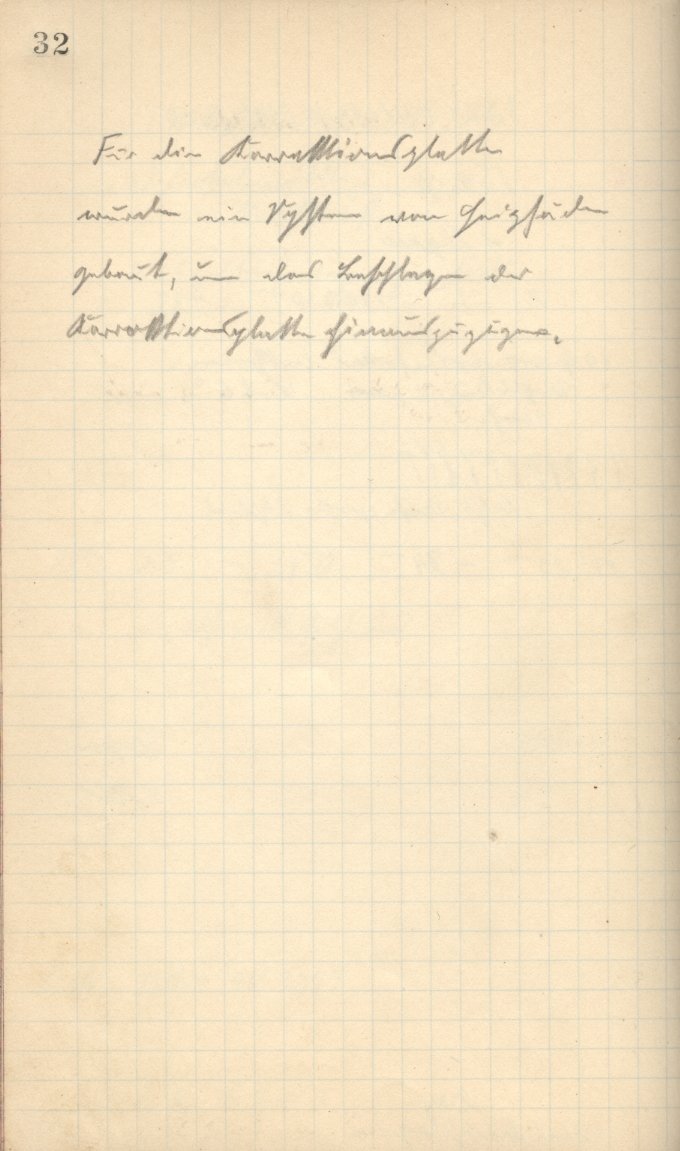 32
Für die Korrektionsplatte
wurde ein System von Heizfäden
gebaut, um das Beschlagen der
Korrektionsplatte hinauszuzögern.